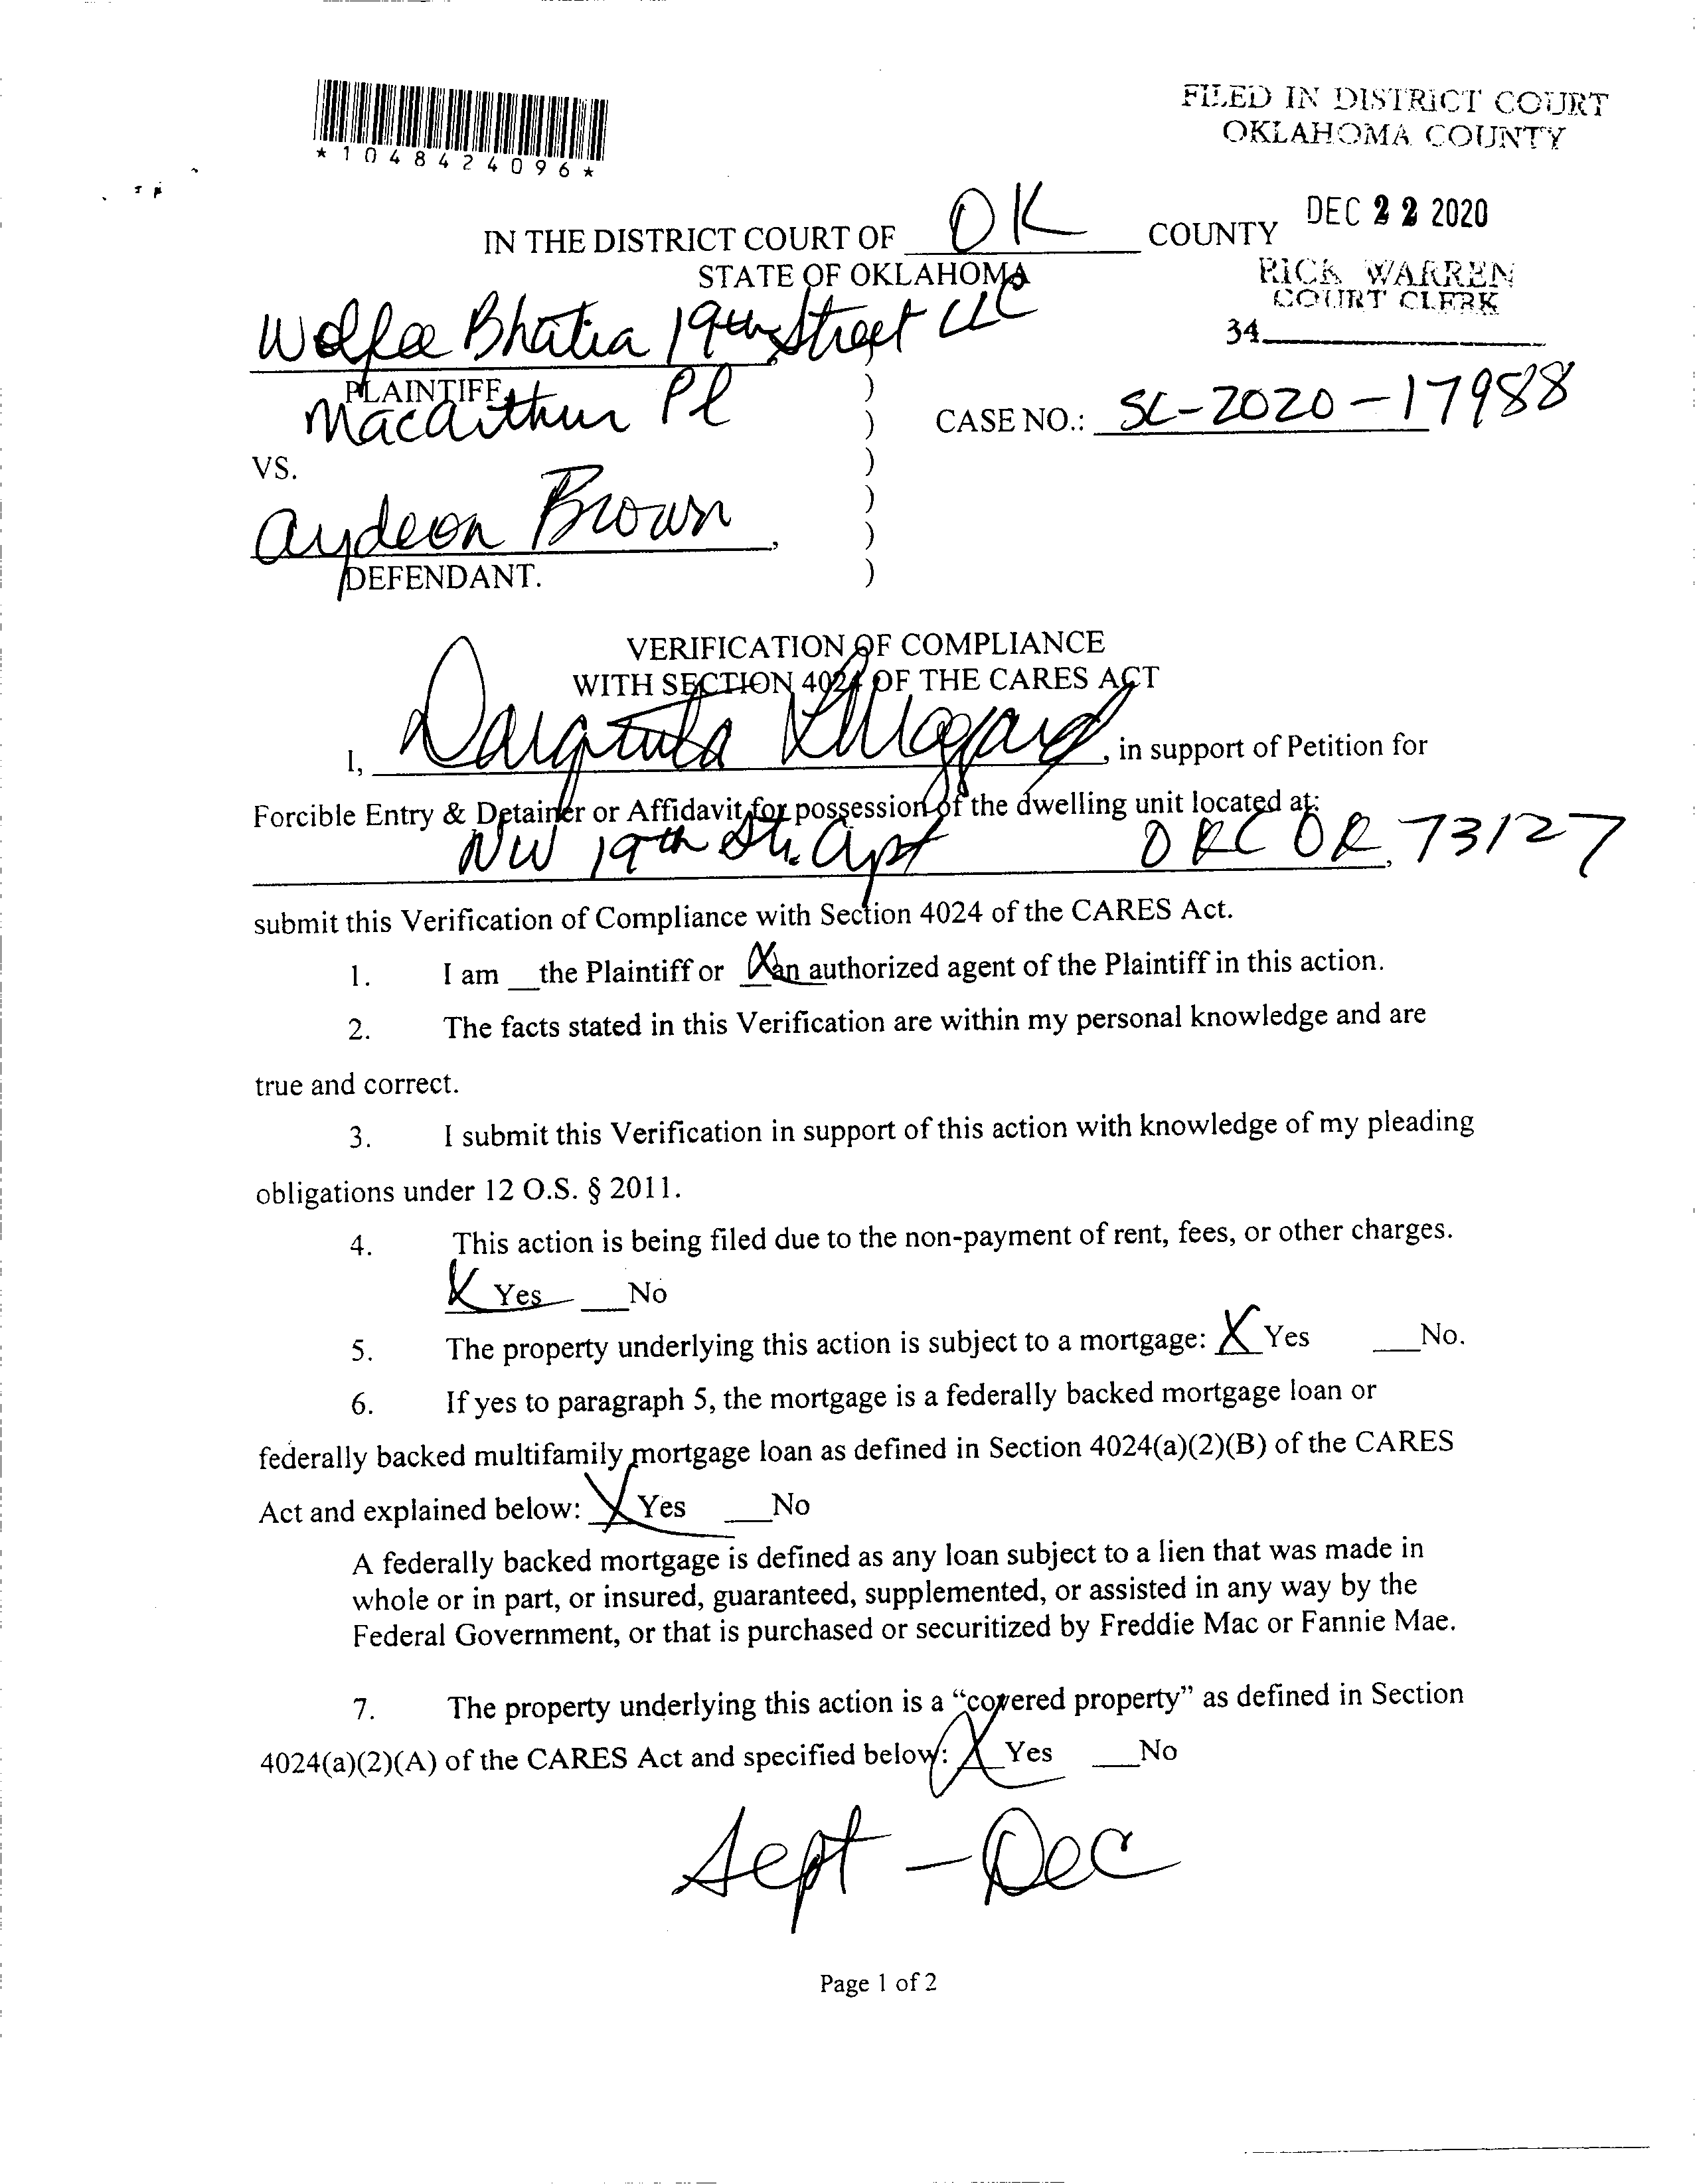 *1048424096*
FILED IN DISTRICT COURT
OKLAHOMA COUNTY
DEC 22 2020
RICK WARREN
COURT CLERK
34
IN THE DISTRICT COURT OF OK COUNTY
STATE OF OKLAHOMA
Wolfee Bhatia 19th Street LLC
PLAINTIFF,
Macarthur Pl
CASE NO.: SC-2020-17988
VS.
Aydeon Brown,
DEFENDANT.
VERIFICATION OF COMPLIANCE
WITH SECTION 4024 OF THE CARES ACT
I, , in support of Petition for
Forcible Entry & Detainer or Affidavit for possession of the dwelling unit located at:
NW 19th St. Apt OKC OK, 73127
submit this Verification of Compliance with Section 4024 of the CARES Act.
1. I am __the Plaintiff or X an authorized agent of the Plaintiff in this action.
2. The facts stated in this Verification are within my personal knowledge and are
true and correct.
3. I submit this Verification in support of this action with knowledge of my pleading
obligations under 12 O.S. § 2011.
4. This action is being filed due to the non-payment of rent, fees, or other charges.
X Yes ___No
5. The property underlying this action is subject to a mortgage: X Yes ___No.
6. If yes to paragraph 5, the mortgage is a federally backed mortgage loan or
federally backed multifamily mortgage loan as defined in Section 4024(a)(2)(B) of the CARES
Act and explained below: X Yes ___No
A federally backed mortgage is defined as any loan subject to a lien that was made in
whole or in part, or insured, guaranteed, supplemented, or assisted in any way by the
Federal Government, or that is purchased or securitized by Freddie Mac or Fannie Mae.
7. The property underlying this action is a “covered property” as defined in Section
4024(a)(2)(A) of the CARES Act and specified below: X Yes ___No
Sept - Dec
Page 1 of 2